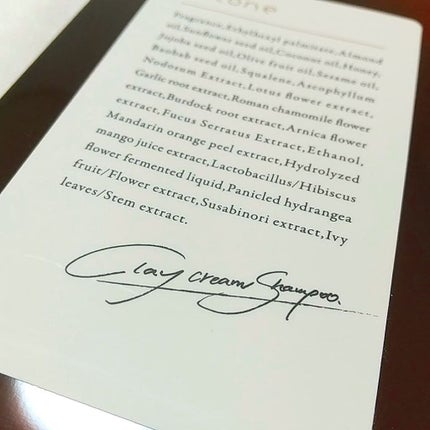 one
oil, Sunflower seed oil, Coconut oil, Honey,
Jojoba seed oil, Olive fruit oil, Sesame oil,
Baobab seed oil, Squalene, Ascophyllum
Nodosum Extract, Lotus flower extract,
Garlic root extract, Roman chamomile flower
extract, Burdock root extract, Arnica flower
extract, Fucus Serratus Extract, Ethanol,
Mandarin orange peel extract, Hydrolyzed
mango juice extract, Lactobacillus/Hibiscus
flower fermented liquid, Panicled hydrangea
fruit/Flower extract, Susabinori extract, Ivy
leaves/Stem extract.
Clay cream Shampoo.